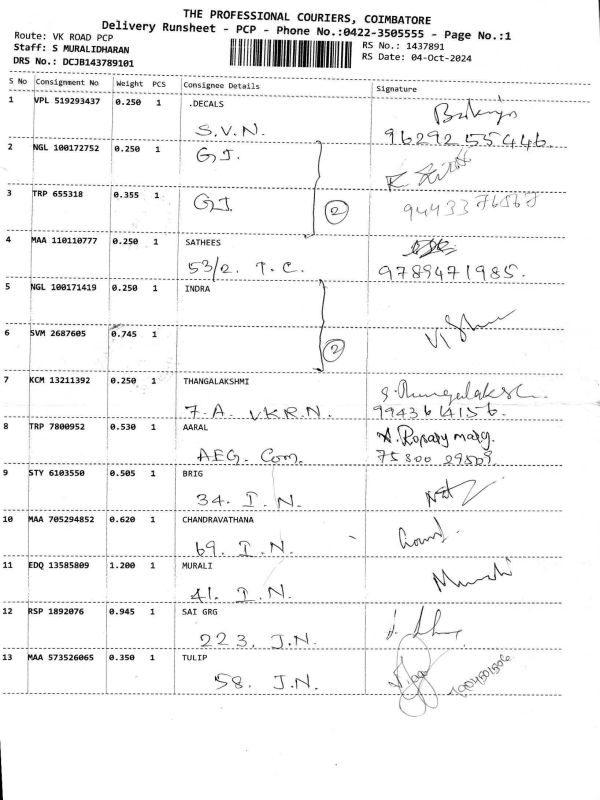 THE PROFESSIONAL COURIERS, COIMBATORE
Delivery Runsheet - PCP - Phone No.:0422-3505555 - Page No.:1
Route: VK ROAD PCP
Staff: S MURALIDHARAN
DRS No.: DCJB143789101
RS No.: 1437891
RS Date: 04-Oct-2024
S No Consignment No Weight PCS Consignee Details Signature
1 VPL 519293437 0.250 1 .DECALS
S.V.N. 96292 55446.
2 NGL 100172752 0.250 1
G.I.
3 TRP 655318 0.355 1
G.I. 2 9443376567
4 MAA 110110777 0.250 1 SATHEES
53/2. T.C. 9789471985.
5 NGL 100171419 0.250 1 INDRA
6 SVM 2687605 0.745 1
2
7 KCM 13211392 0.250 1 THANGALAKSHMI
7-A. VKR.N. 9943614156.
8 TRP 7800952 0.530 1 AARAL A. Rosary marg.
AEG. Com. 75300 29509
9 STY 6103550 0.505 1 BRIG
34. I.N.
10 MAA 705294852 0.620 1 CHANDRAVATHANA
69. I.N.
11 EDQ 13585809 1.200 1 MURALI
41. I.N. Murali
12 RSP 1892076 0.945 1 SAI GRG
223. J.N.
13 MAA 573526065 0.350 1 TULIP
58. J.N.